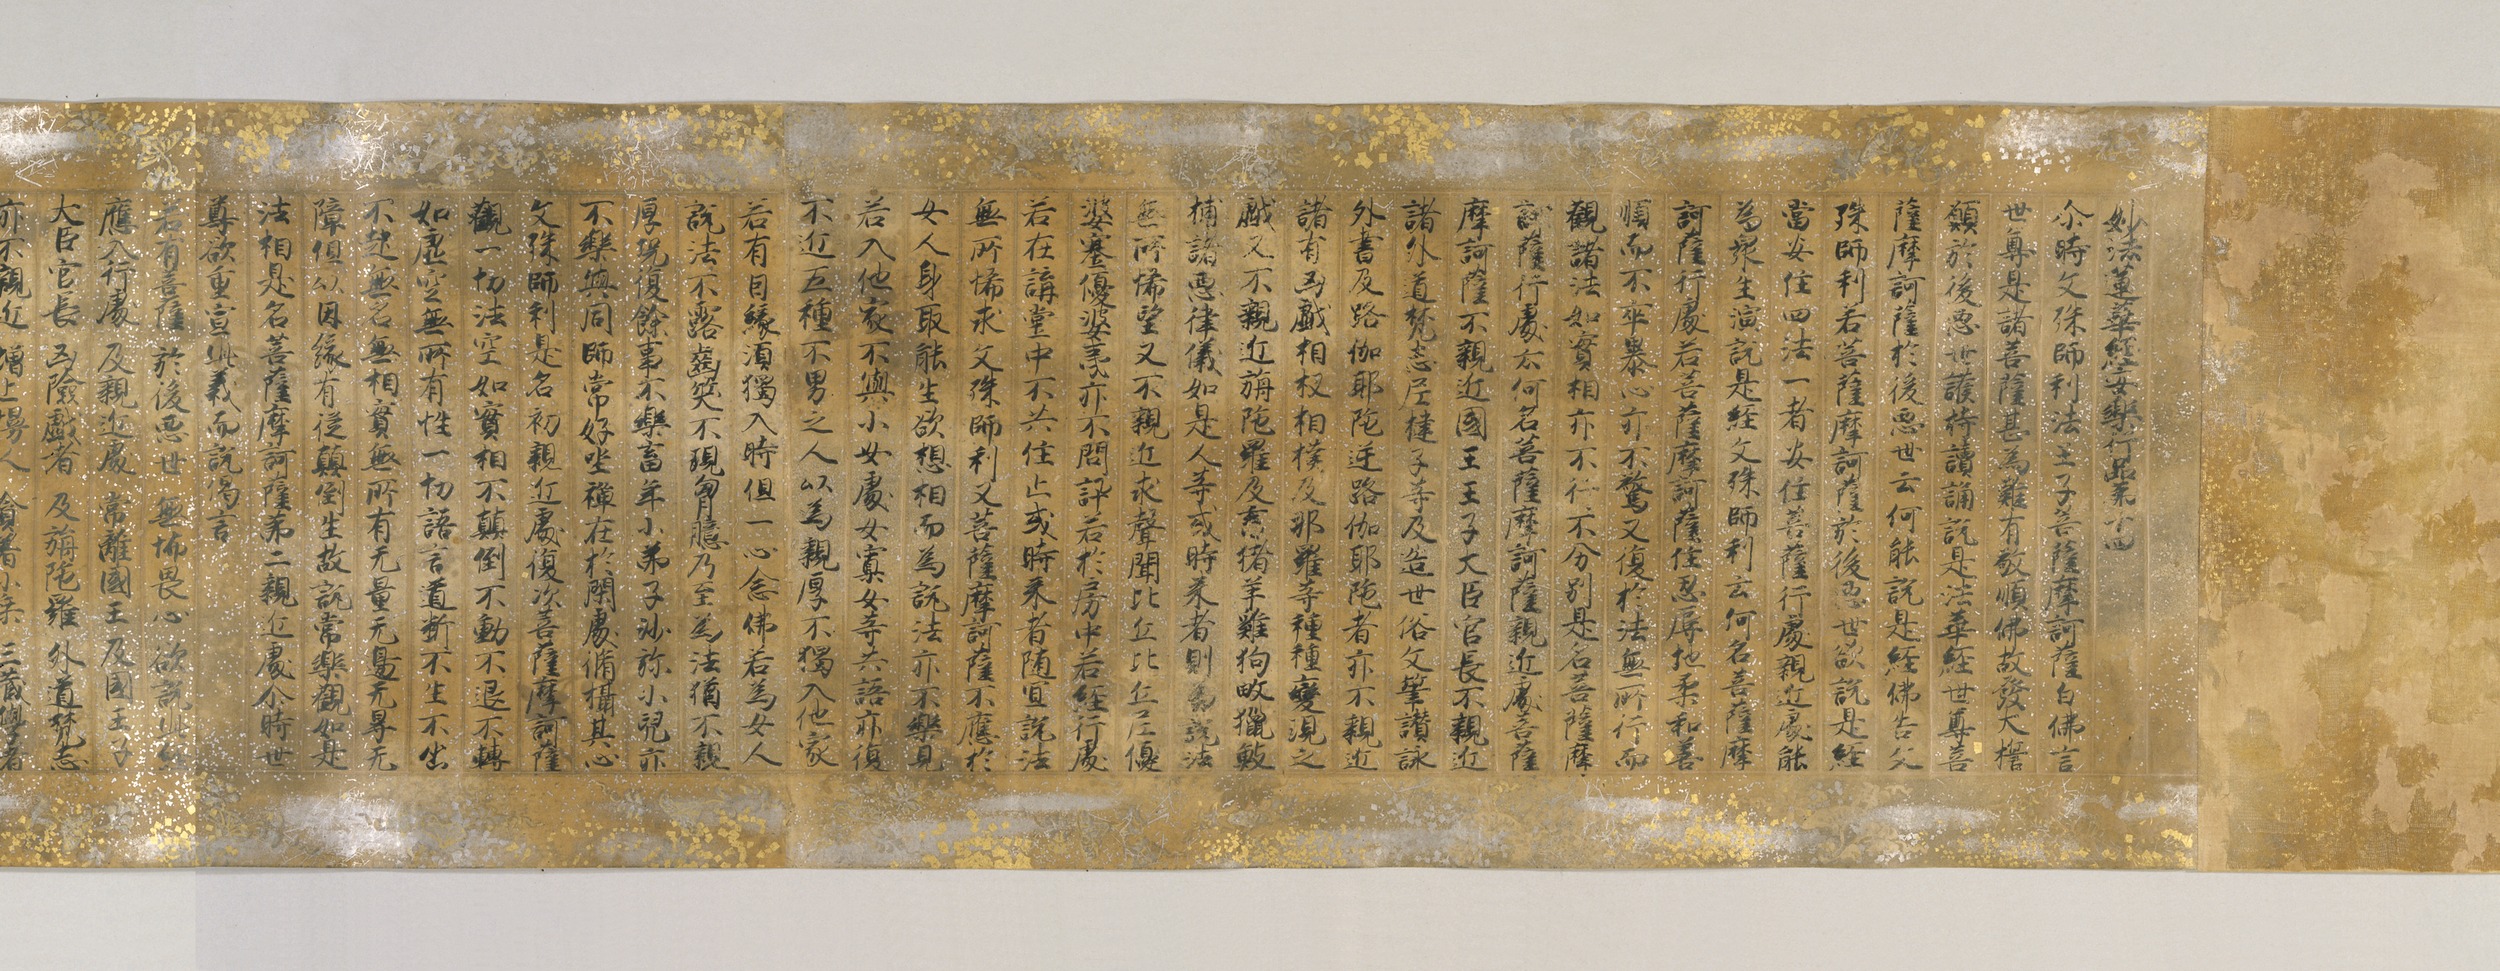 妙法蓮華経安樂行品苐十四
尒時文殊師利法王子菩薩摩訶薩白佛言
世尊是諸菩薩甚為難有敬順佛故發大擔
願於後惡世護持讀誦說是法華経世尊菩
薩摩訶薩於後惡世云何能說是経佛告文
殊師利若菩薩摩訶薩於後惡世欲說是経
當安住四法一者安住菩薩行處親近處能
為衆生演說是経文殊師利云何名菩薩摩
訶薩行處若菩薩摩訶薩住忍辱地柔和善
順而不卒暴心亦不驚又復於法無所行而
觀諸法如實相亦不行不分別是名菩薩摩
訶薩行處云何名菩薩摩訶薩親近處菩薩
摩訶薩不親近國王王子大臣官長不親近
諸外道梵志尼揵子等及造世俗文筆讃詠
外書及路伽耶陁逆路伽耶陁者亦不親近
諸有㐫戲相扠相撲及那羅等種種變現之
戲又不親近旃陁羅及畜猪羊雞狗畋獵魚
捕諸惡律儀如是人等或時来者則為說法
無所悕望又不親近求聲聞比丘比丘尼優
婆塞優婆夷亦不問訊若於房中若経行處
若在講堂中不共住止或時来者随冝說法
無所悕求文殊師利又菩薩摩訶薩不應於
女人身取能生欲想相而為說法亦不樂見
若入他家不與小女處女寡女等共語亦復
不近五種不男之人以為親厚不獨入他家
若有因縁湏獨入時但一心念佛若為女人
說法不露齒笑不現胷臆乃至為法猶不親
厚況復餘事不樂畜年小弟子沙弥小兒亦
不樂與同師常好坐禪在於閑處脩攝其心
文殊師利是名初親近處復次菩薩摩訶薩
觀一切法空如實相不顛倒不動不退不轉
如虛空無所有性一切語言道断不生不出
不起無名無相實無所有无量无邊无㝵无
障但以因縁有従顛倒生故說常樂觀如是
法相是名菩薩摩訶薩苐二親近處尒時世
尊欲重宣此義而說偈言
若有菩薩 於後惡世 無怖畏心 欲說此経
應入行處 及親近處 常離國王 及國王子
大臣官長 㐫險戲者 及旃陁羅 外道梵志
亦不親近 增上慢人 貪著小乗 三蔵學者